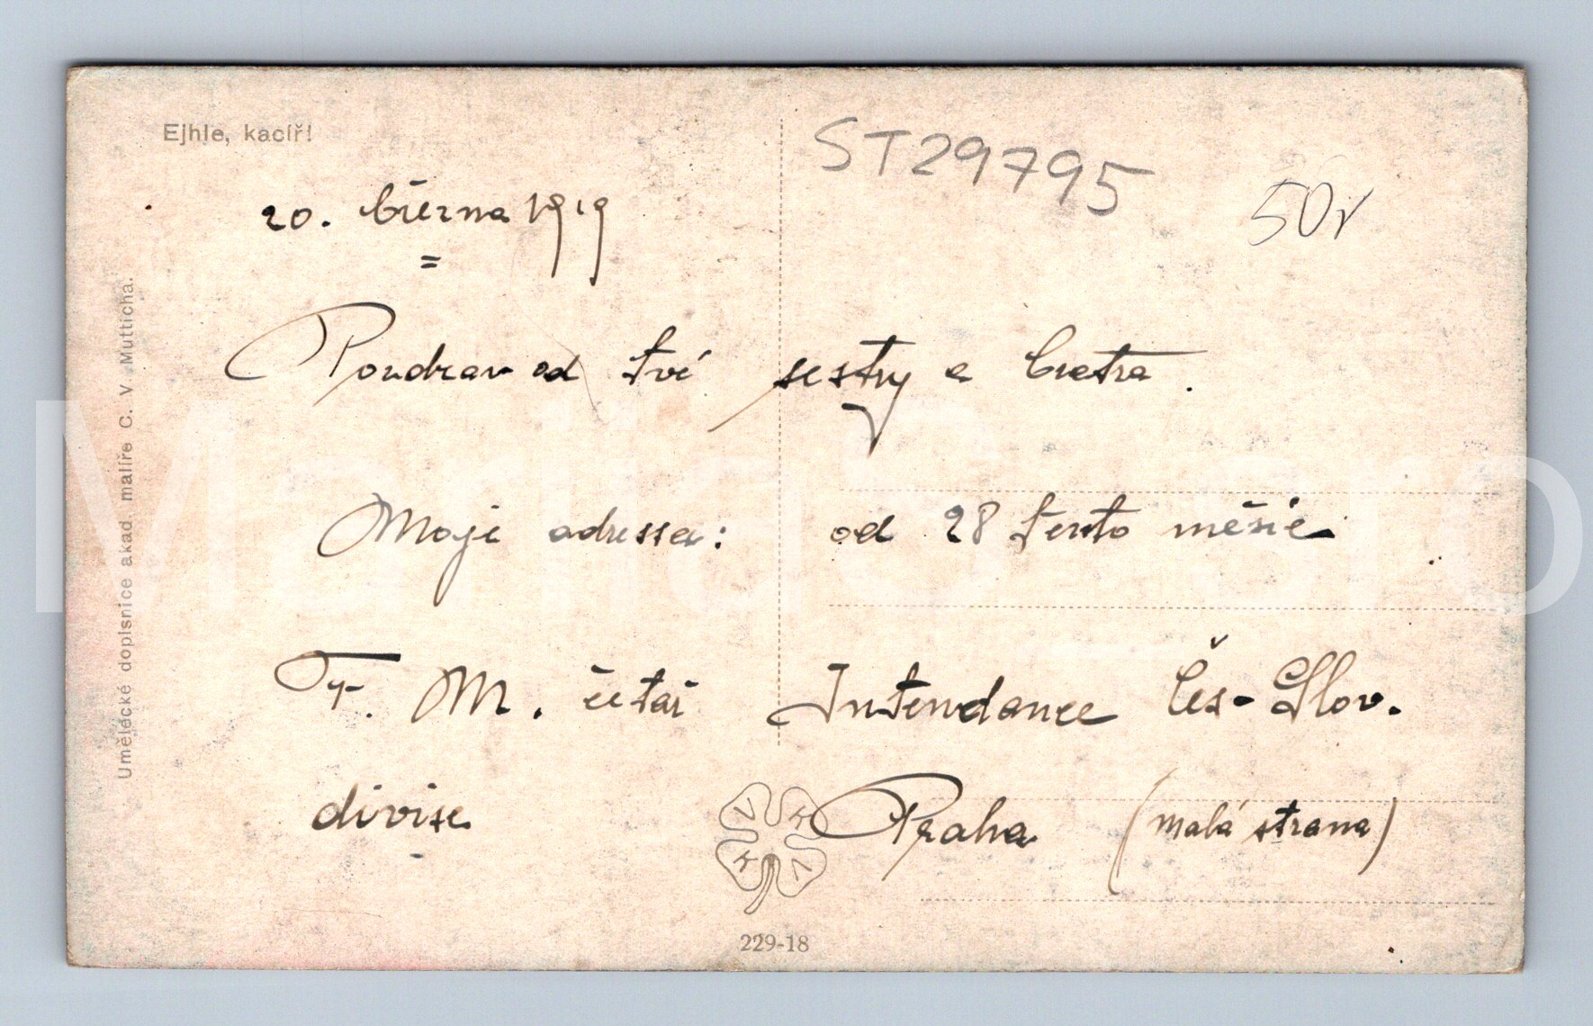 Ejhle, kacíř!
ST29795
50,-
20. března 1919
Pozdrav od tvé sestry a bratra.
Moje adressa: od 28 tento měsíc
F. M. četař Intendance Čes-Slov.
divise Praha (malá strana)
Umělecké dopisnice akad. malíře C. V. Mutticha.
VKKV
229-18